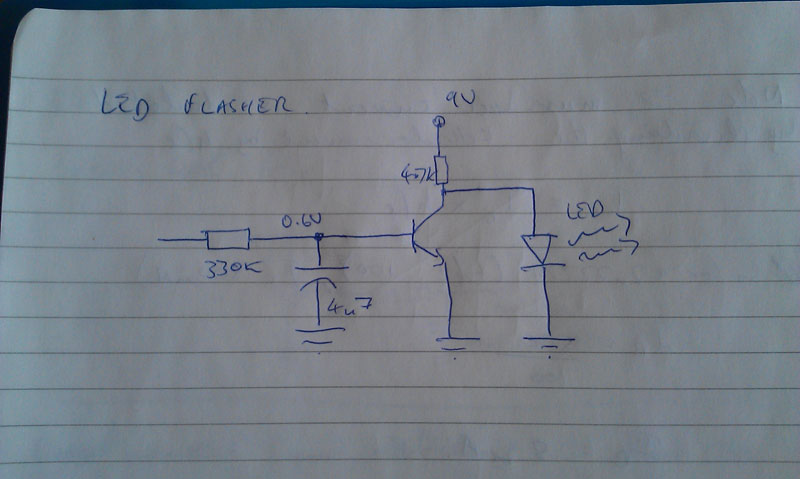 LED FLASHER
9V
4.7K
0.6V
LED
330K
4u7